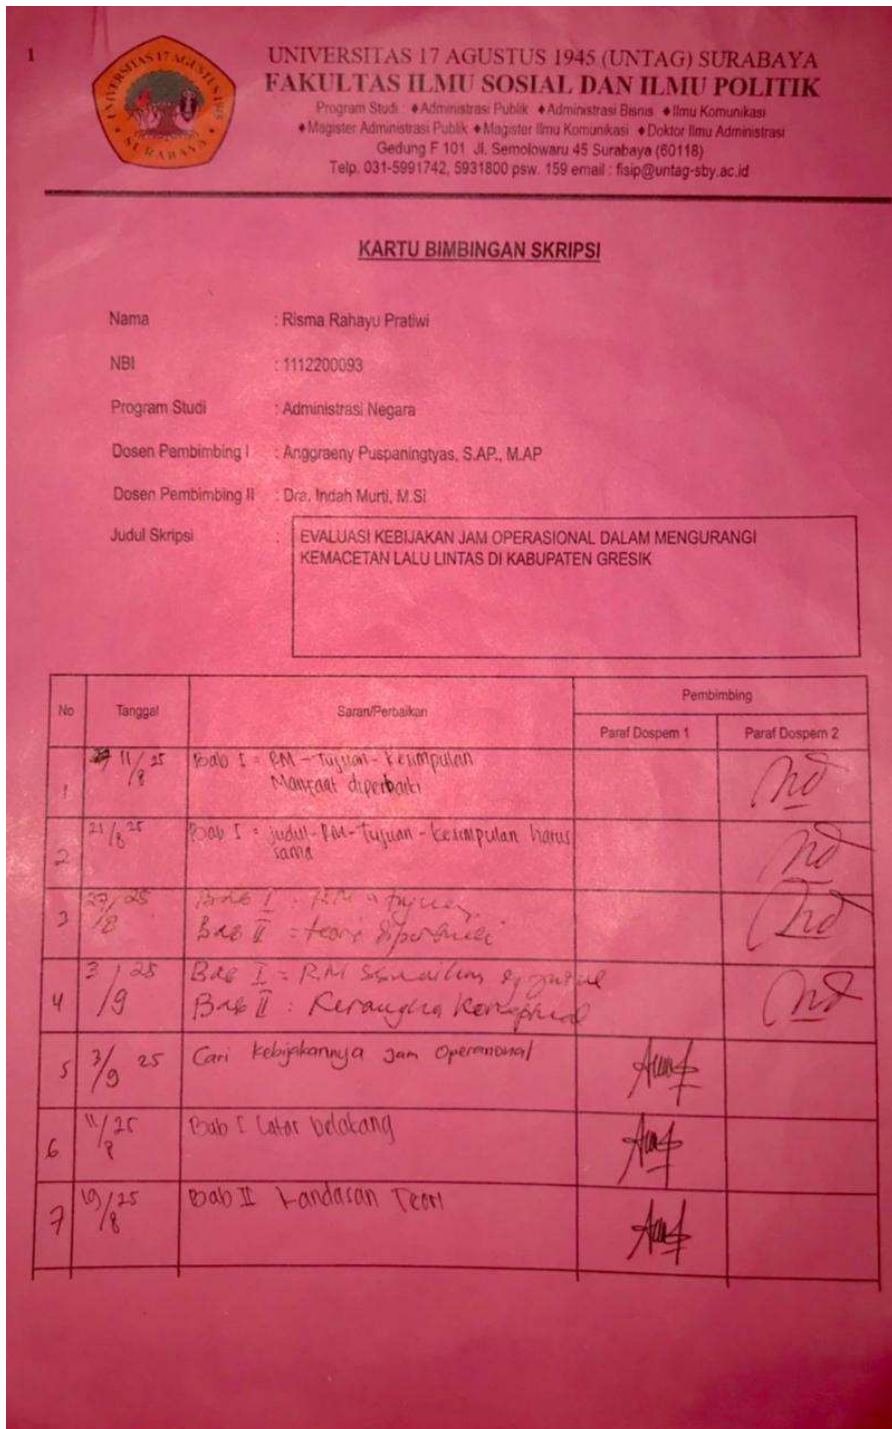 1
UNIVERSITAS 17 AGUSTUS 1945
SURABAYA
UNIVERSITAS 17 AGUSTUS 1945 (UNTAG) SURABAYA
FAKULTAS ILMU SOSIAL DAN ILMU POLITIK
Program Studi : ♦Administrasi Publik ♦Administrasi Bisnis ♦Ilmu Komunikasi
♦Magister Administrasi Publik ♦Magister Ilmu Komunikasi ♦Doktor Ilmu Administrasi
Gedung F 101 Jl. Semolowaru 45 Surabaya (60118)
Telp. 031-5991742, 5931800 psw. 159 email : fisip@untag-sby.ac.id
KARTU BIMBINGAN SKRIPSI
Nama : Risma Rahayu Pratiwi
NBI : 1112200093
Program Studi : Administrasi Negara
Dosen Pembimbing I : Anggraeny Puspaningtyas, S.AP., M.AP
Dosen Pembimbing II : Dra. Indah Murti, M.Si
Judul Skripsi : EVALUASI KEBIJAKAN JAM OPERASIONAL DALAM MENGURANGI
KEMACETAN LALU LINTAS DI KABUPATEN GRESIK
No Tanggal Saran/Perbaikan Pembimbing
Paraf Dospem 1 Paraf Dospem 2
1 11/8 25 Bab I = RM - Tujuan - Kesimpulan
Manfaat diperbaiki
2 21/8 25 Bab I = judul - RM - Tujuan - kesimpulan harus
sama
3 27/8 25 Bab I : RM = tujuan
Bab II = teori diperbaiki
4 3/9 25 Bab I = RM sesuaikan dg judul
Bab II : Kerangka Konseptual
5 3/9 25 Cari kebijakannya jam Operasional
6 11/ 25 Bab I Latar belakang
7 19/8 25 Bab II Landasan Teori